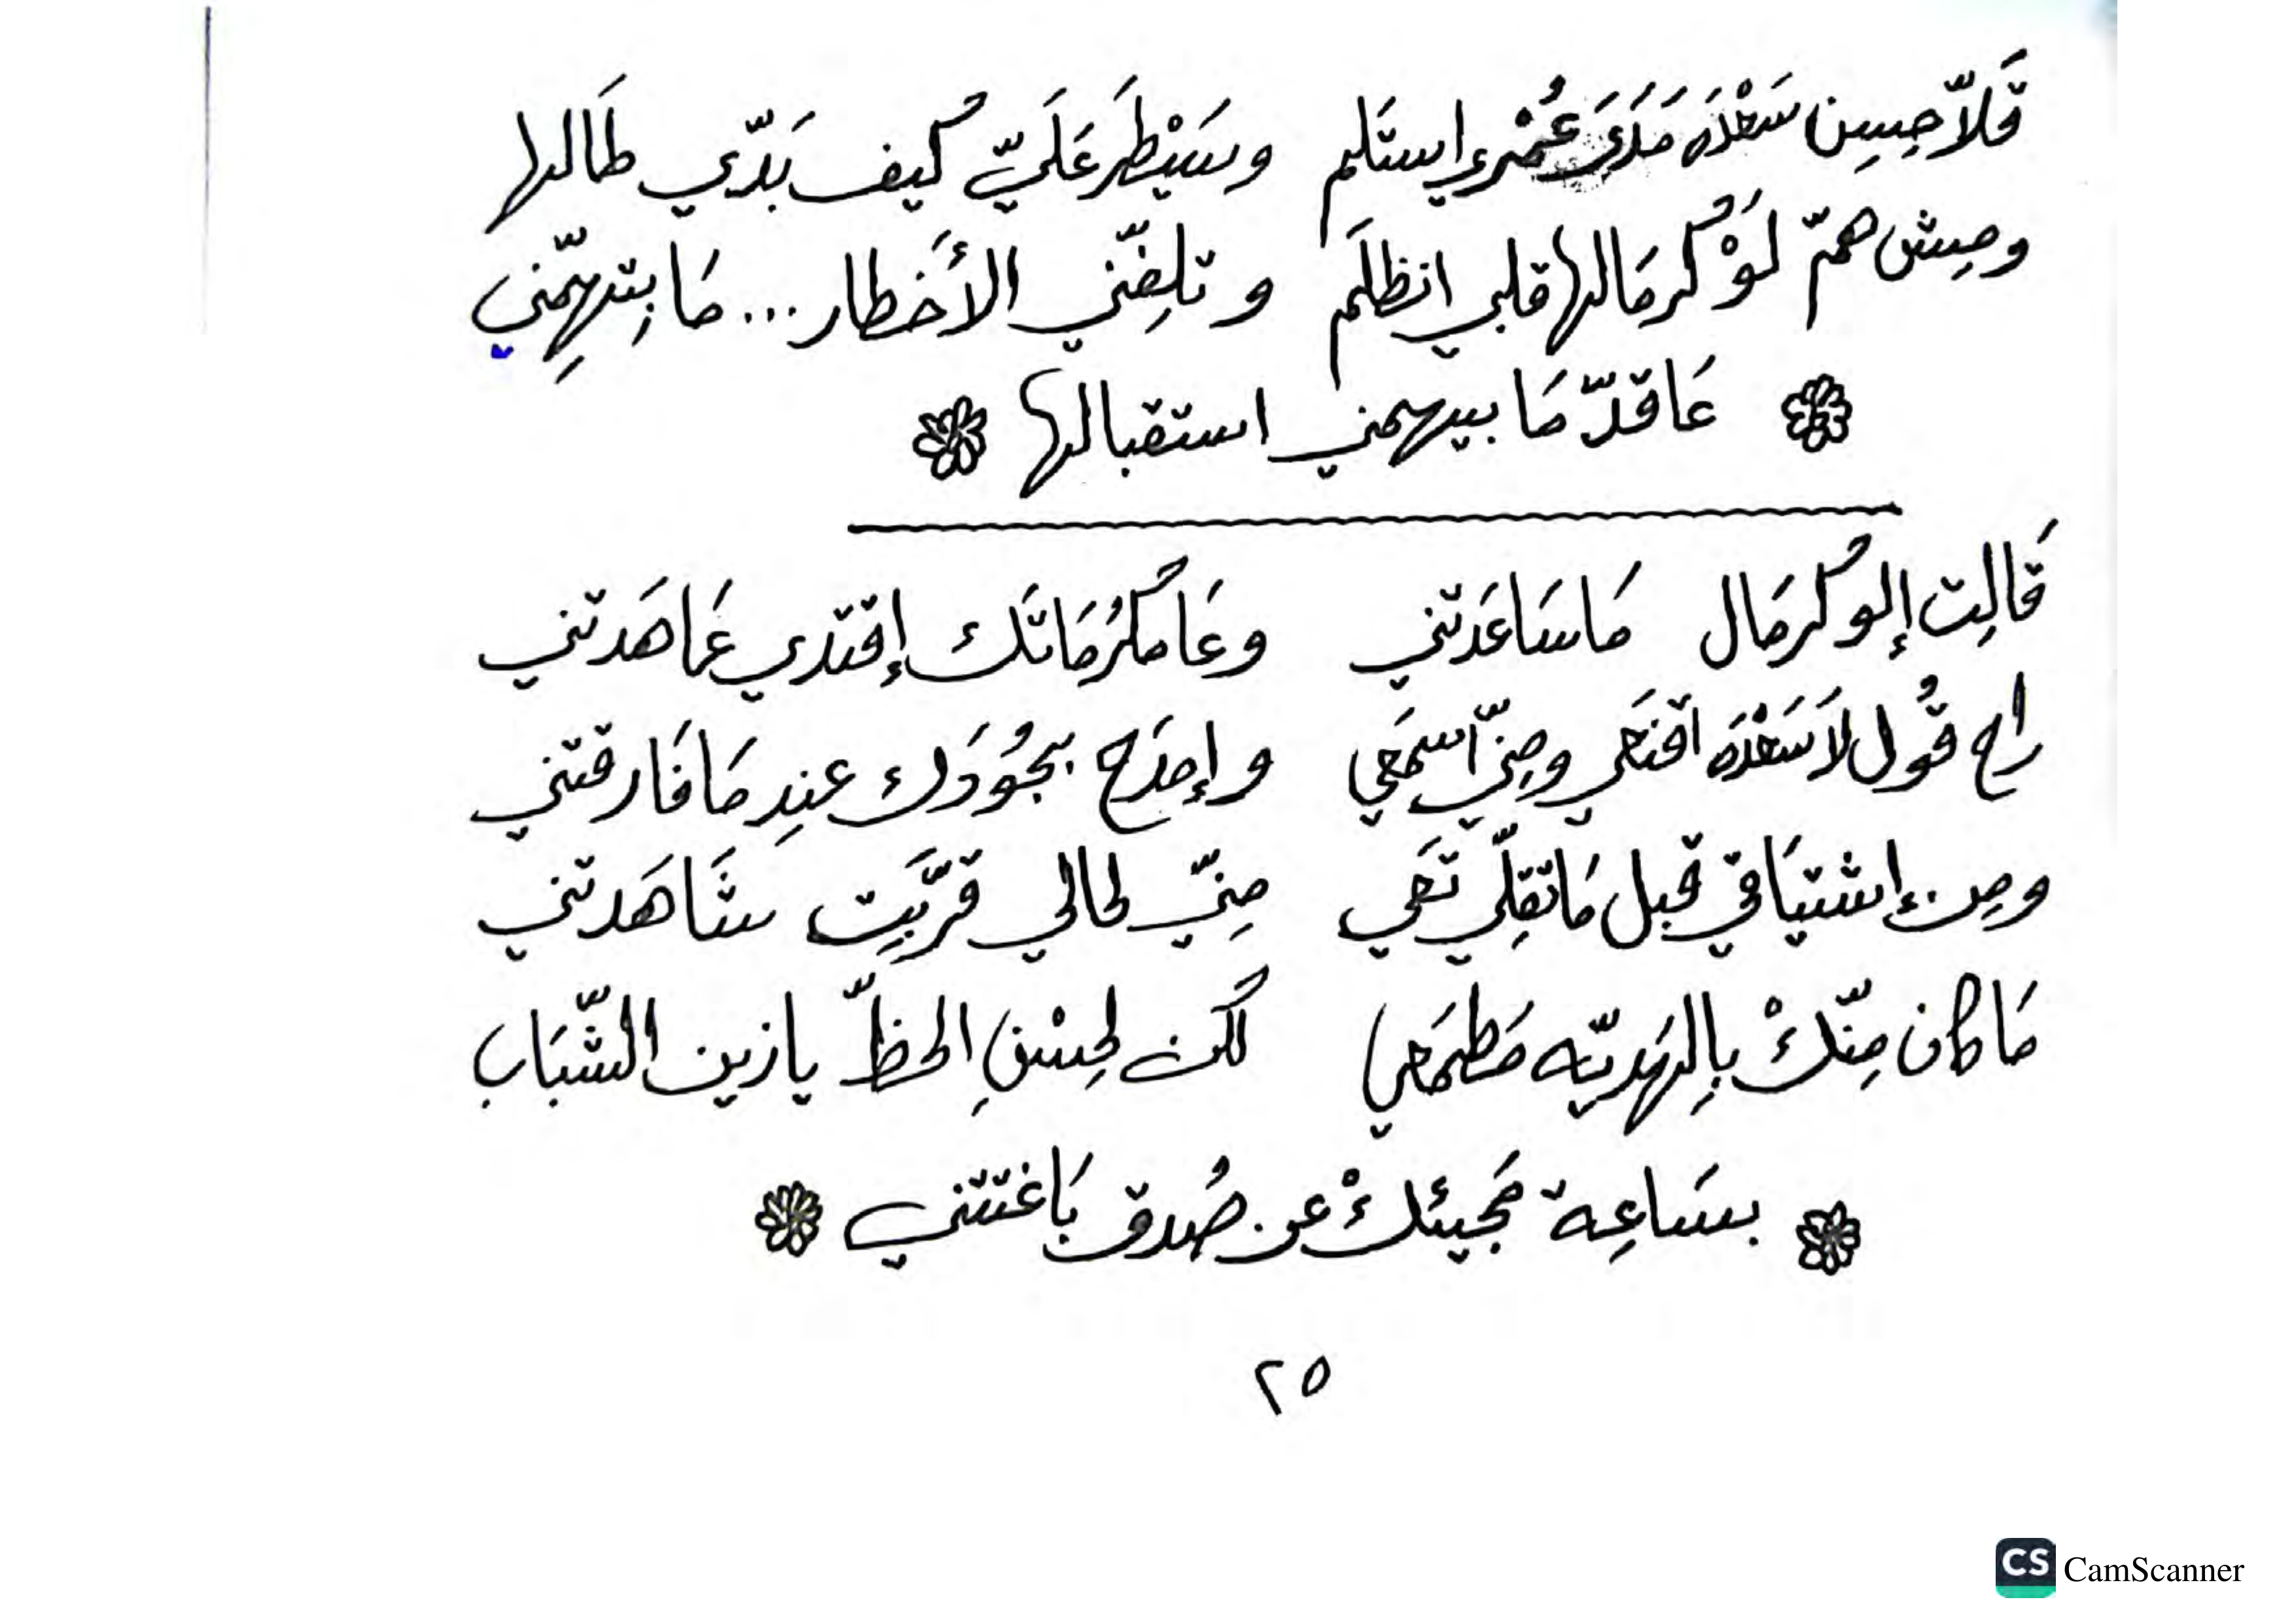 قَلاّ حِسِين سَعْدَه مَدَى عُمْري إستَلم وسَيْطَر عَلَيّ كُيف بَدّي طَالها
ومِش همّ لَوْ كُرمَالها قلبي انظلَم وتلِفّني الأخطار... مَا بِتهِمّني
عَا قدّ مَا بيهمني استقبالها
قَالِت إلو كُرمَال مَا سَاعَدتني وعَا مكرُمَاتَك إقتدي عَاهَدتني
راح قُول لَا سَعْدَه اقنَعي ومِنّي اسمَعي وإمدَح بجُودَك عندِ مَا فَارقتني
ومِن إشتيَاقي قبل مَا تقِلّي تَعي مِنّي لحالي قرَّبِت شَاهَدتني
مَا كان مِنّكْ بِالهَديّه مَطمَعي لكَن لحِسْنِ الحظّ يا زين الشّبَاب
بسَاعِة مَجيئكْ عن صُدق بَاغتتني
٢٥
CS CamScanner